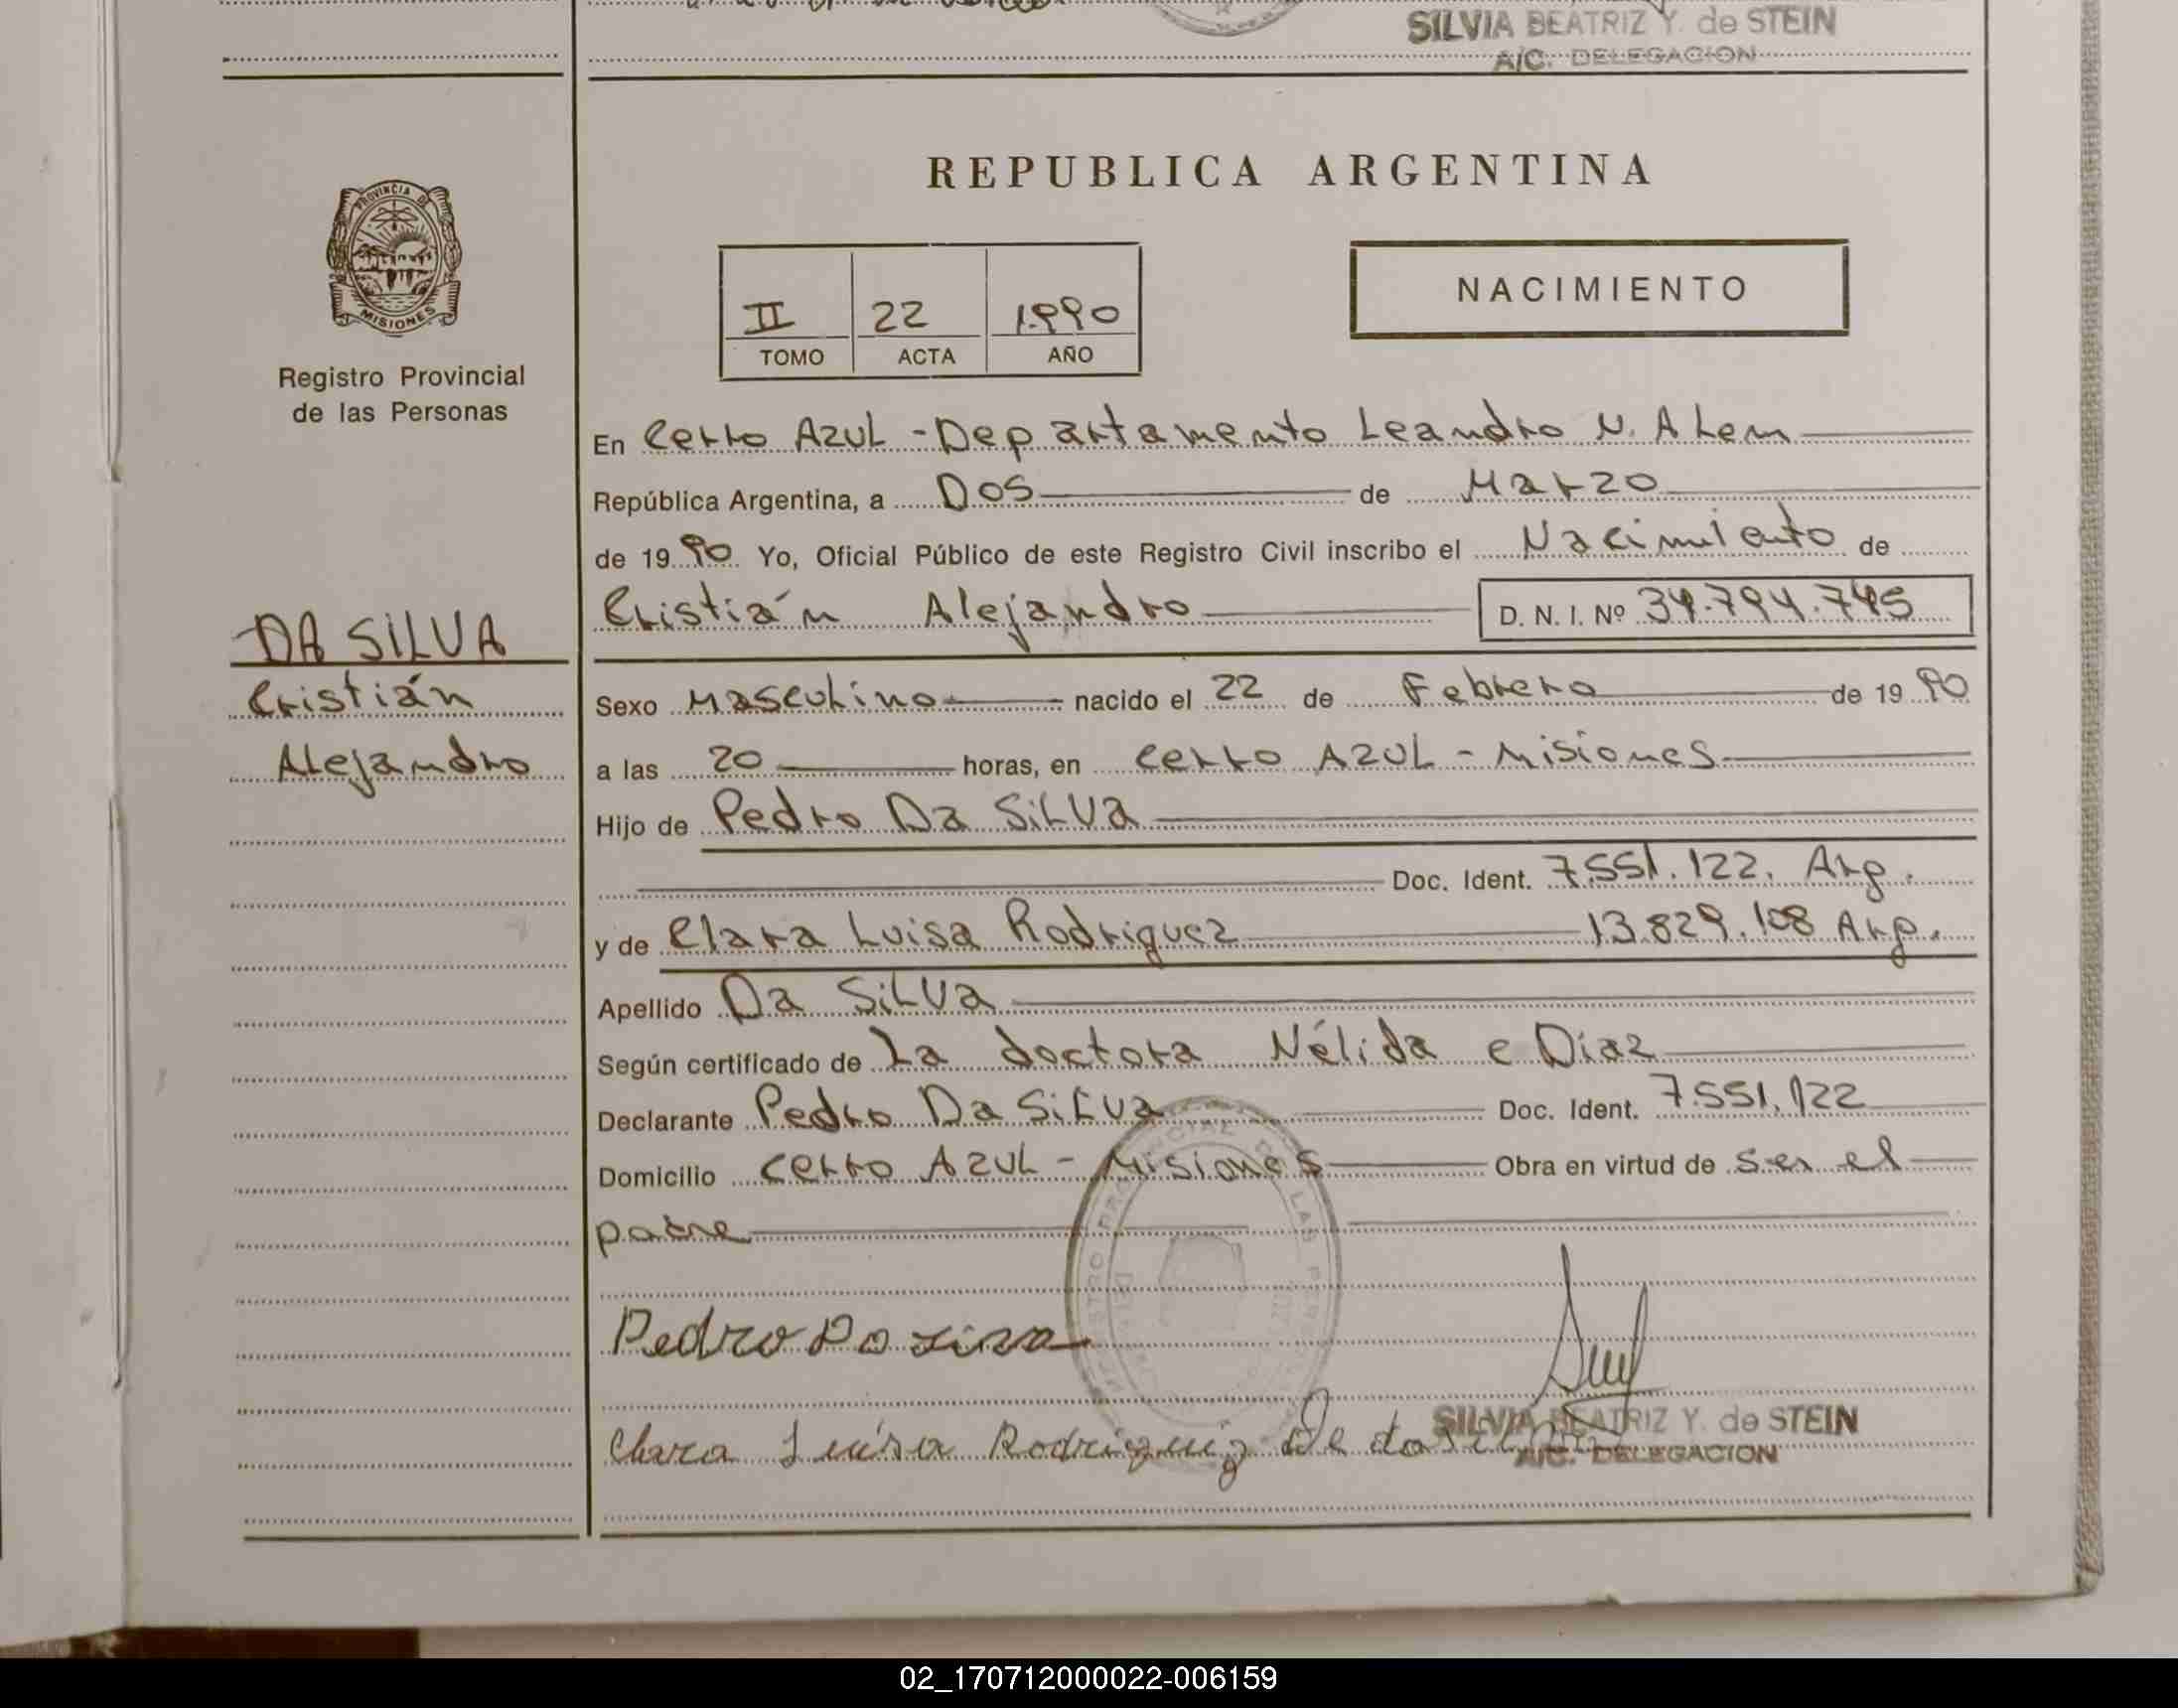 SILVIA BEATRIZ Y. de STEIN
A/C. DELEGACION
REPUBLICA ARGENTINA
PROVINCIA DE
MISIONES
Registro Provincial
de las Personas
II 22 1.990
TOMO ACTA AÑO
NACIMIENTO
En Cerro Azul - Departamento Leandro N. Alem
República Argentina, a Dos de Marzo
de 19 90 Yo, Oficial Público de este Registro Civil inscribo el Nacimiento de
Cristián Alejandro D. N. I. Nº 34.794.745
DA SILVA
Cristián
Alejandro
Sexo Masculino nacido el 22 de Febrero de 19 90
a las 20 horas, en Cerro Azul - Misiones
Hijo de Pedro Da Silva
Doc. Ident. 7.551.122. Arg.
y de Clara Luisa Rodriguez 13.829.108 Arg.
Apellido Da Silva
Según certificado de La doctora Nélida e Diaz
Declarante Pedro Da Silva Doc. Ident. 7.551.122
Domicilio Cerro Azul - Misiones Obra en virtud de ser el
padre
Pedro Da
Clara Luisa Rodriguez de
SILVIA BEATRIZ Y. de STEIN
A/C. DELEGACION
02_170712000022-006159